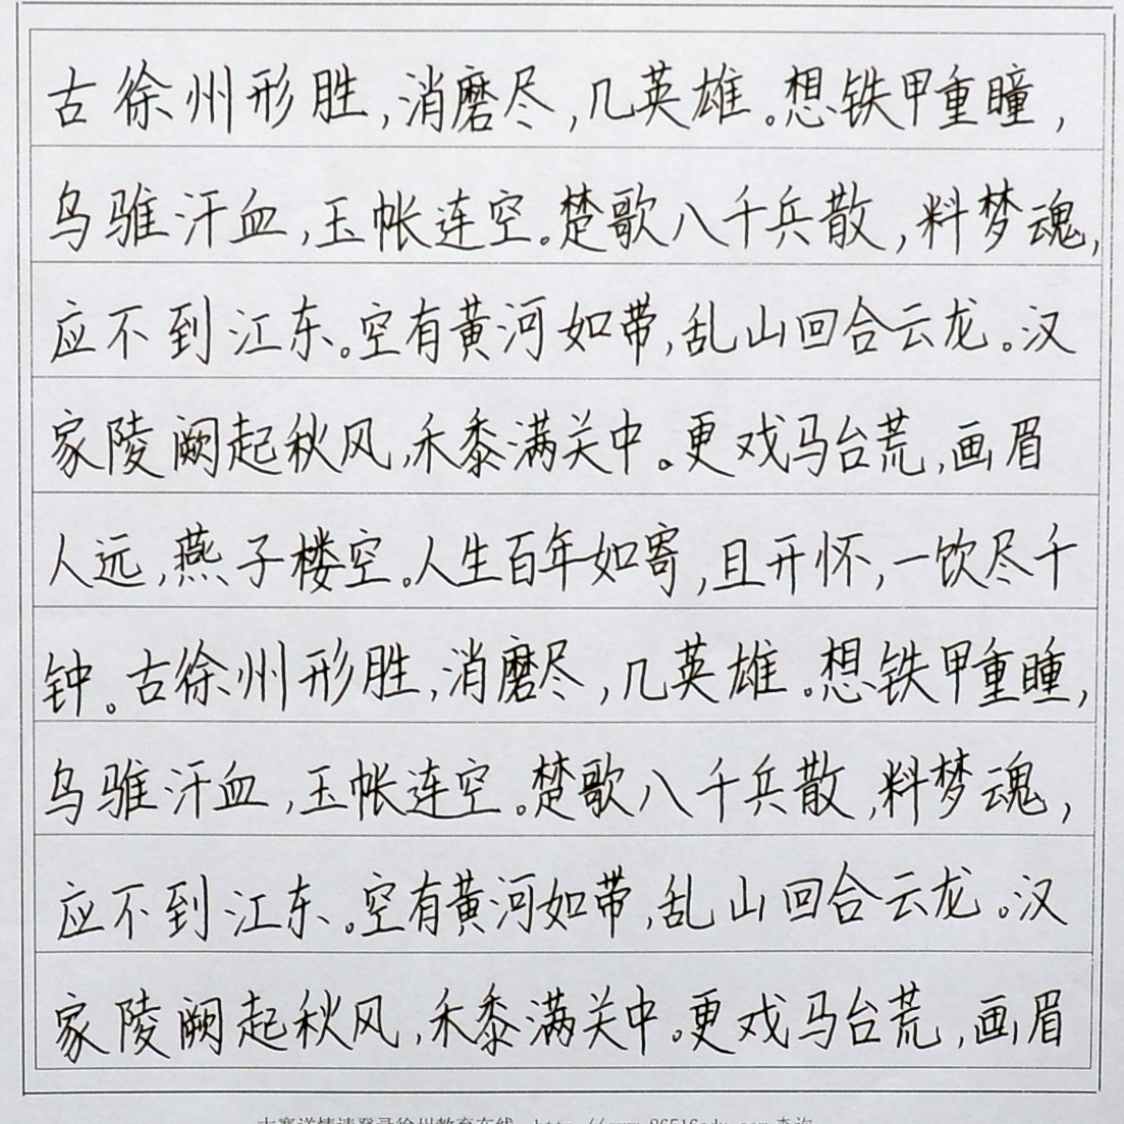 古徐州形胜,消磨尽,几英雄。想铁甲重瞳,
乌骓汗血,玉帐连空。楚歌八千兵散,料梦魂,
应不到江东。空有黄河如带,乱山回合云龙。汉
家陵阙起秋风,禾黍满关中。更戏马台荒,画眉
人远,燕子楼空。人生百年如寄,且开怀,一饮尽千
钟。古徐州形胜,消磨尽,几英雄。想铁甲重瞳,
乌骓汗血,玉帐连空。楚歌八千兵散,料梦魂,
应不到江东、。空有黄河如带,乱山回合云龙。汉
家陵阙起秋风,禾黍满关中。更戏马台荒,画眉